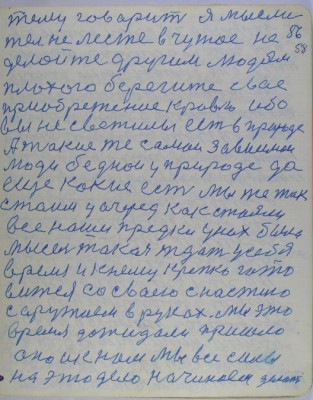 тему говарит я мысли
тел не лесте в чужое на 86
делойте другим людям 58
плохого берегите свае
приобретение кровью ибо
вы не светилы есть в природе
А такие те самои зависимои
люди беднои у природе да
еще какие есть мы же так
стаим у очеред как стояли
все наши предки у них была
мысел такая ждать у себя
время и к нему крепко гото
вится со своею снастию
с аружием в руках. мы это
время дожидали пришло
оно и к нам мы все силы
на это дело начинаем